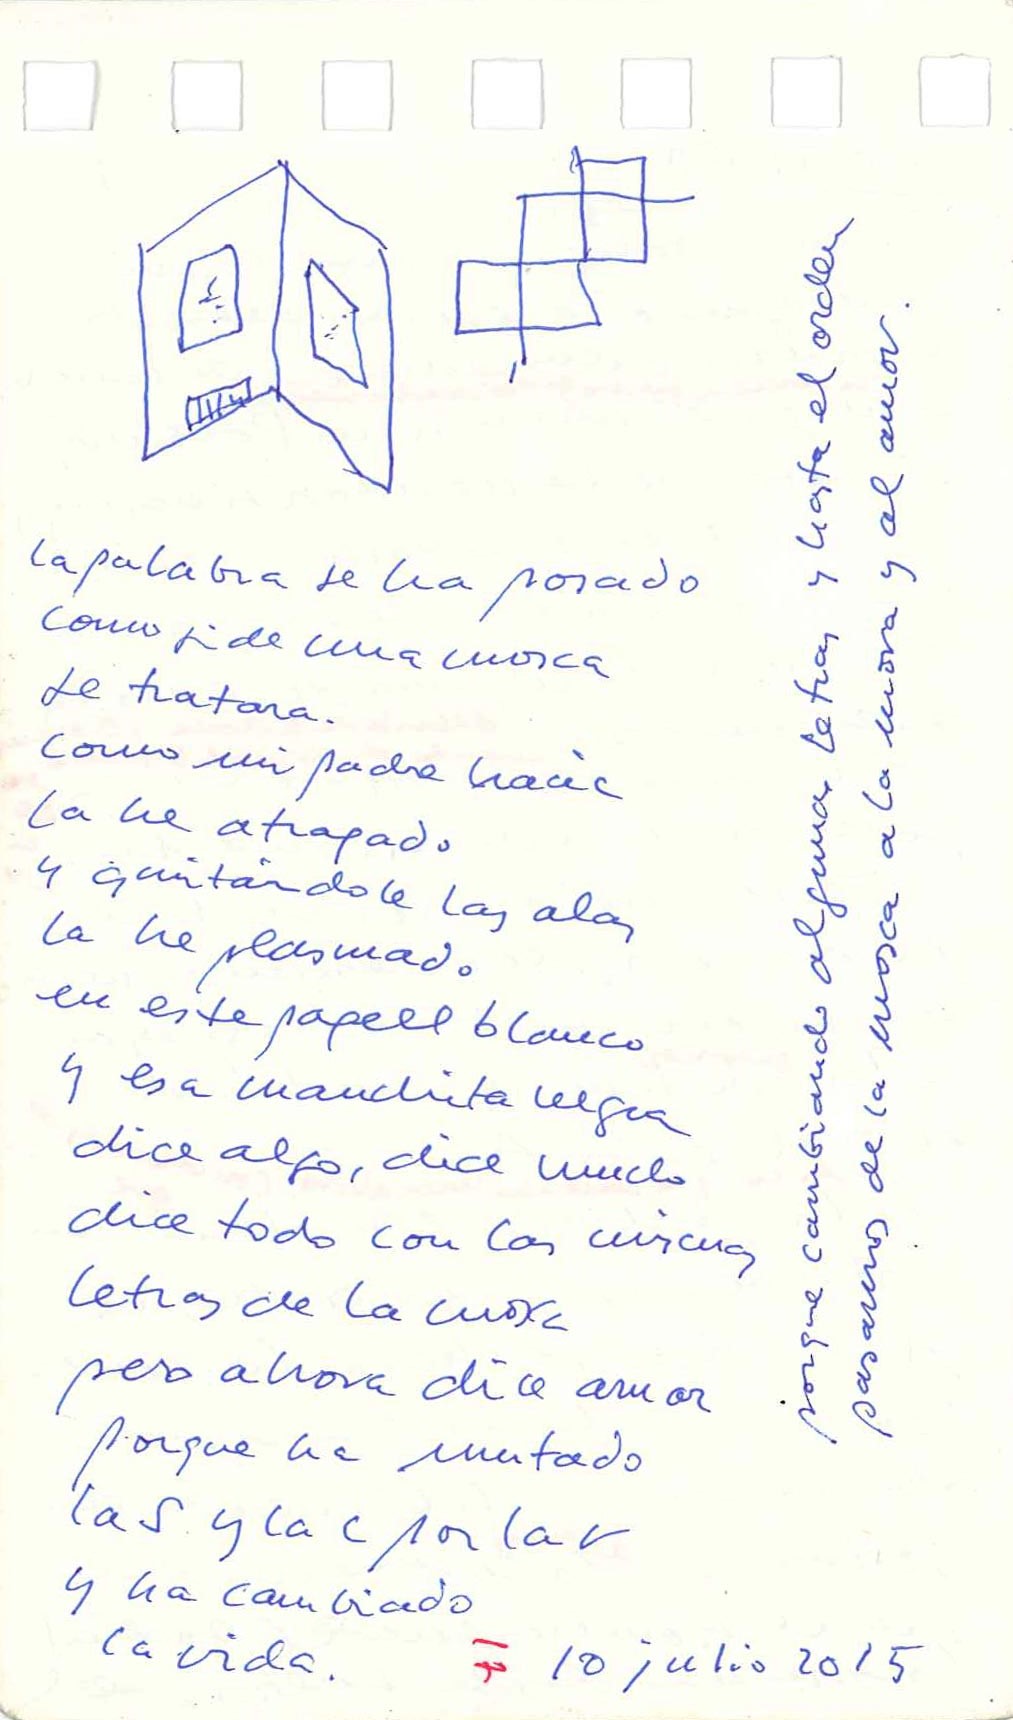 la palabra se ha posado
como si de una mosca
se tratara.
como mi padre hacía
la he atrapado
y quitándole las alas
la he plasmado
en este papel blanco
y esa manchita negra
dice algo, dice mucho
dice todo con las mismas
letras de la mosca
pero ahora dice amor
porque ha mutado
la S y la c por la r
y ha cambiado
la vida.
10 julio 2015
porque cambiando algunas letras y hasta el orden
pasamos de la mosca a la mora y al amor.